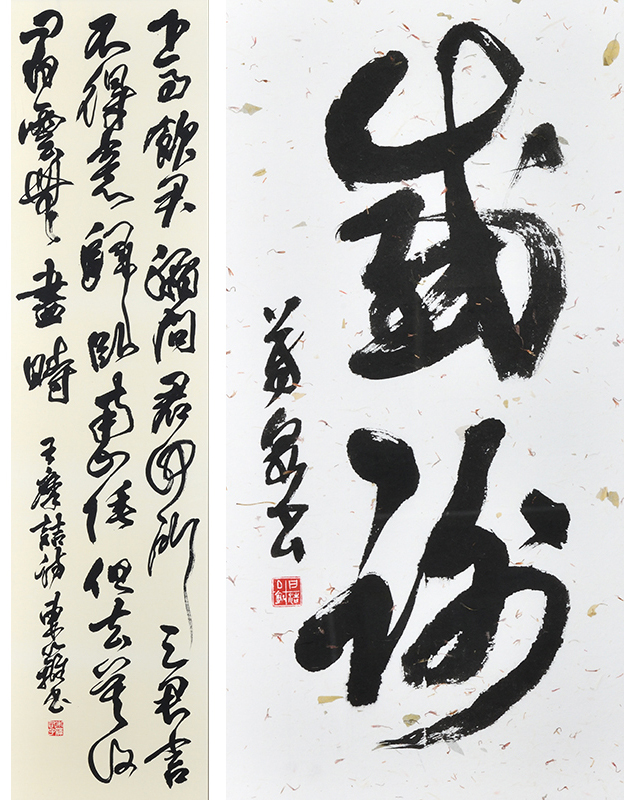 下馬飲君酒問君何所之君言
不得意歸臥南山陲但去莫復
問白雲無盡時
王摩詰詩東籬書
感謝
泉书